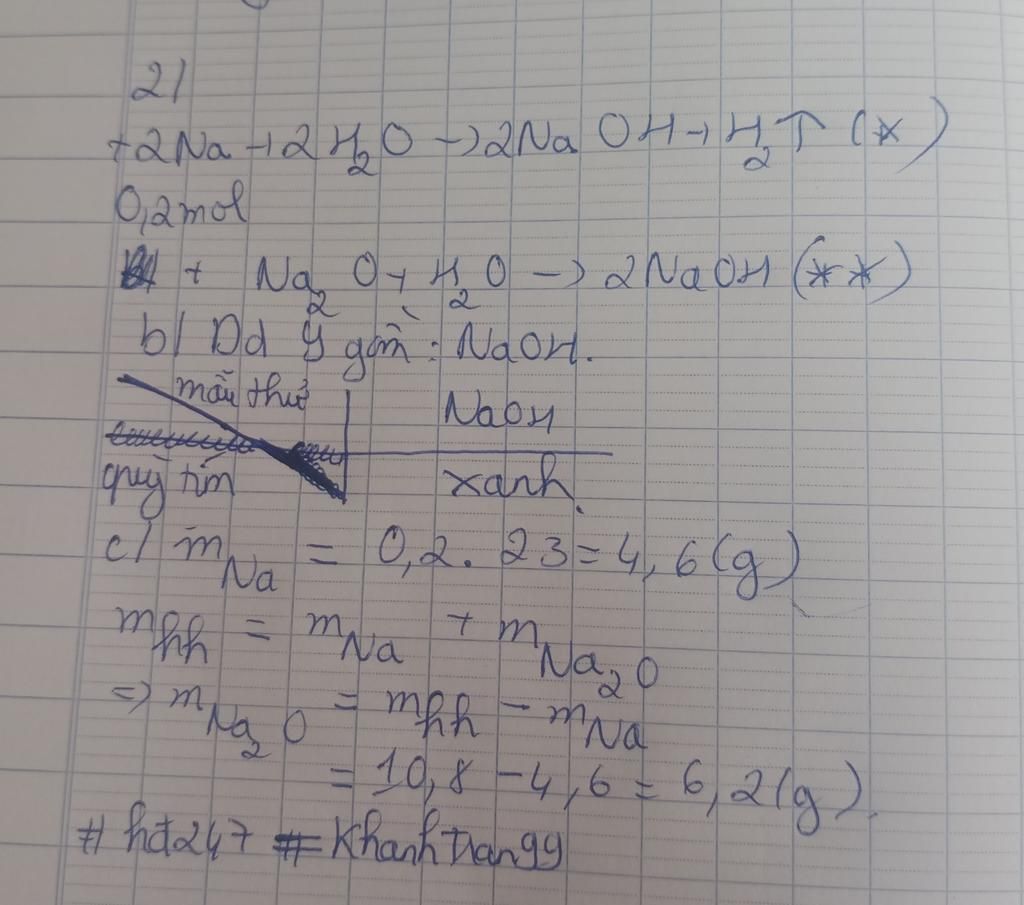 2/
+2Na+2H₂O→2NaOH+H₂↑(*)
0,2mol
+ Na₂O+H₂O→2NaOH(**)
b/ Dd Y gồm: NaOH.
mẫu thử NaOH
quỳ tím xanh.
c/ m_Na = 0,2. 23=4,6(g)
m_hh = m_Na + m_Na₂O
=> m_Na₂O = m_hh - m_Na
= 10,8 -4,6= 6,2(g).
# hđ247 #Khanhtran99